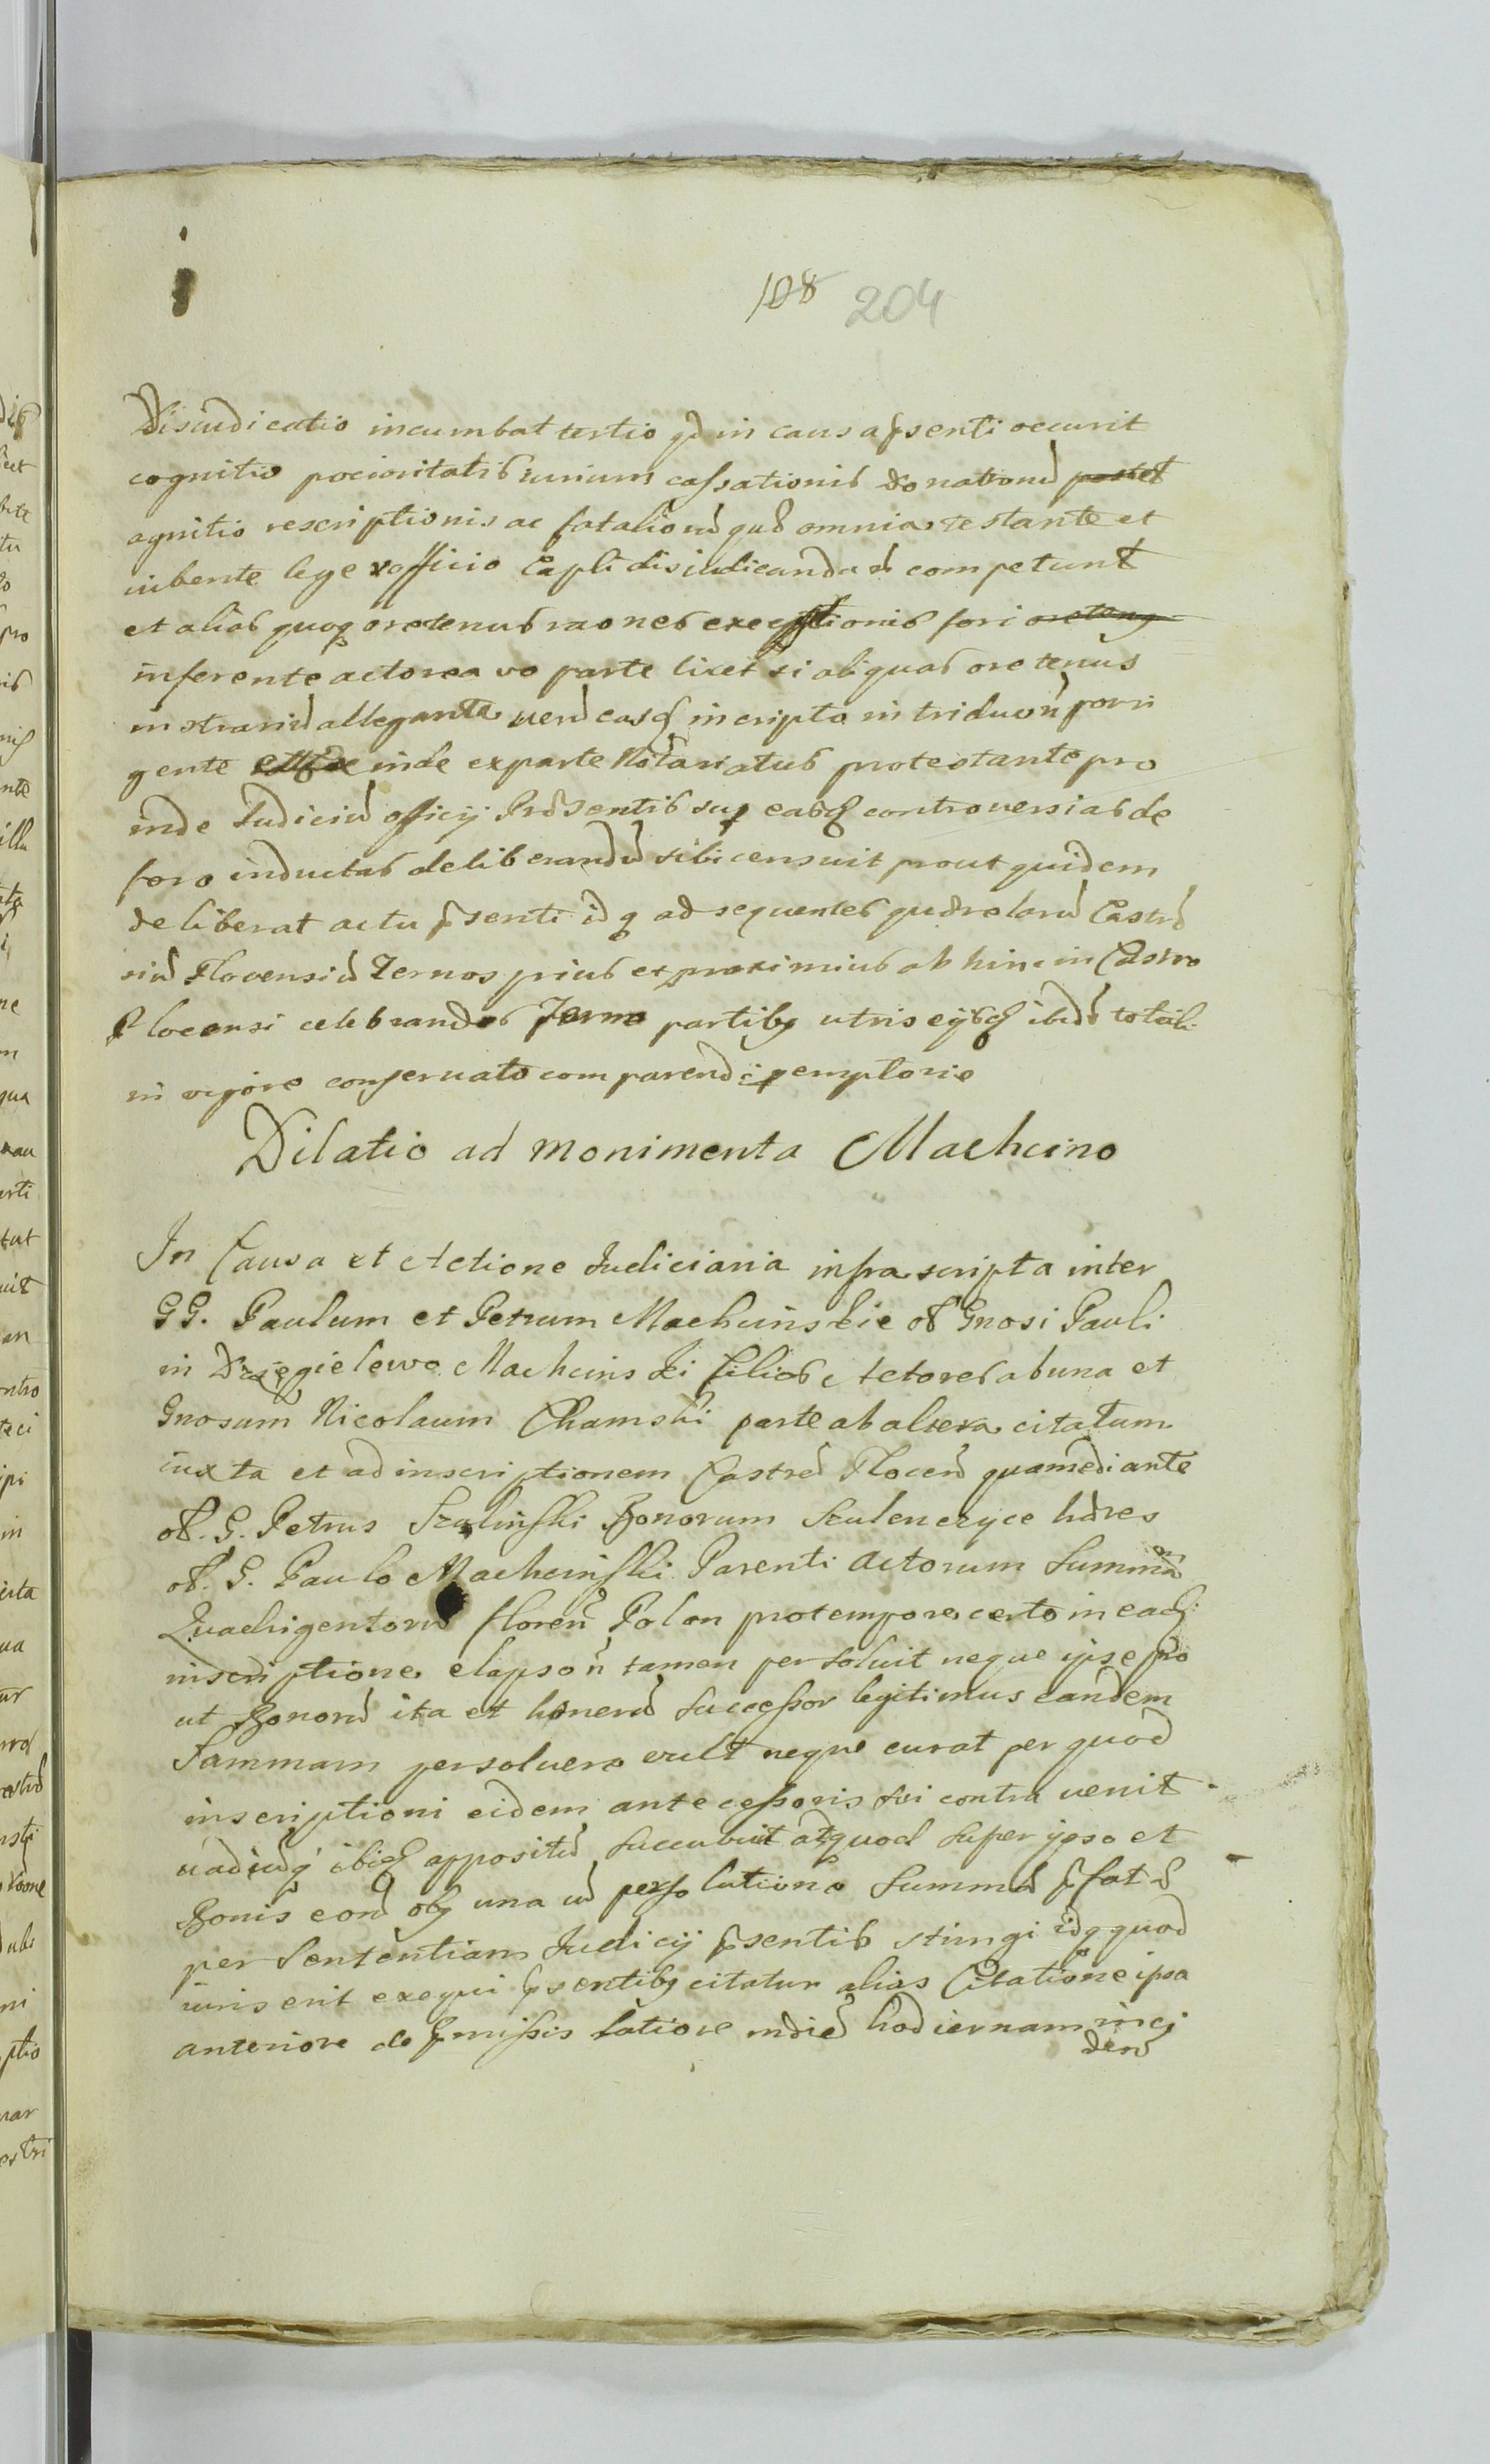 108 204
Disiudicatio incumbat tertio qd in causa pſenti occurit
cognitio pocioritatis iurium caſsationis donationu postet
agnitio rescriptionis ac fatalioru quae omnia testante et
iubente lege officio Capli disiudicanda competunt
et alias quoq oretenus raones exceptionis fori oreteng
inferente actorea vo parte licet si aliquas ore tenus
in allegante easq in cripto in triduo porri
gente inde exparte Notariatus protestante pro
inde Judiciu officij Prdsentis sup easq controversias de
foro inductas deliberandu sibi censuit prout quidem
deliberat actu pſenti idq ad sequentes querelaru Castre
niu Plocensiu Termos prius et proximius ab hinc in Castro
Plocensi celebrandos Termo partibq utriseijsq ibide totali
in vigore conservato comparendi pemptorie
Dilatio ad monimenta Machcino
In Causa et Actione Judiciaria infra scripta inter
GG. Paulum et Petrum Machcinskie ol Gnosi Pauli
in Dzięgielewo Machcinski filios Actores ab una et
Gnosum Nicolaum Chamski parte ab altera citatum
iuxta et ad inscriptionem Castren Plocen quamediante
ol. G. Petrus Szulinſki Bonorum Szulenczyce hdres
ol. G. Paulo Machcinſki Parenti Actorum Summa
Quadrigentoru floren Polon pro tempore certo in eadq
inscriptione elapso n tamen persoluit neque ipse pno
ut Bonoru ita et honeru Succeſsor legitimus eandem
Summam persoluere vult neque curat per quod
inscriptioni eidem anteceſsoris sui contra uenit
uadiuq ibiq appositu succubuit atq quod super ipso et
Bonis eoru obq una cu persolutione Summa pfata
per Sententiam Judicij pſentis stringi idq quod
iuris erit exequi psentibq citatur alias Citatione ipsa
anteriore de pmiſsis latiore indie hodiernam inci
den